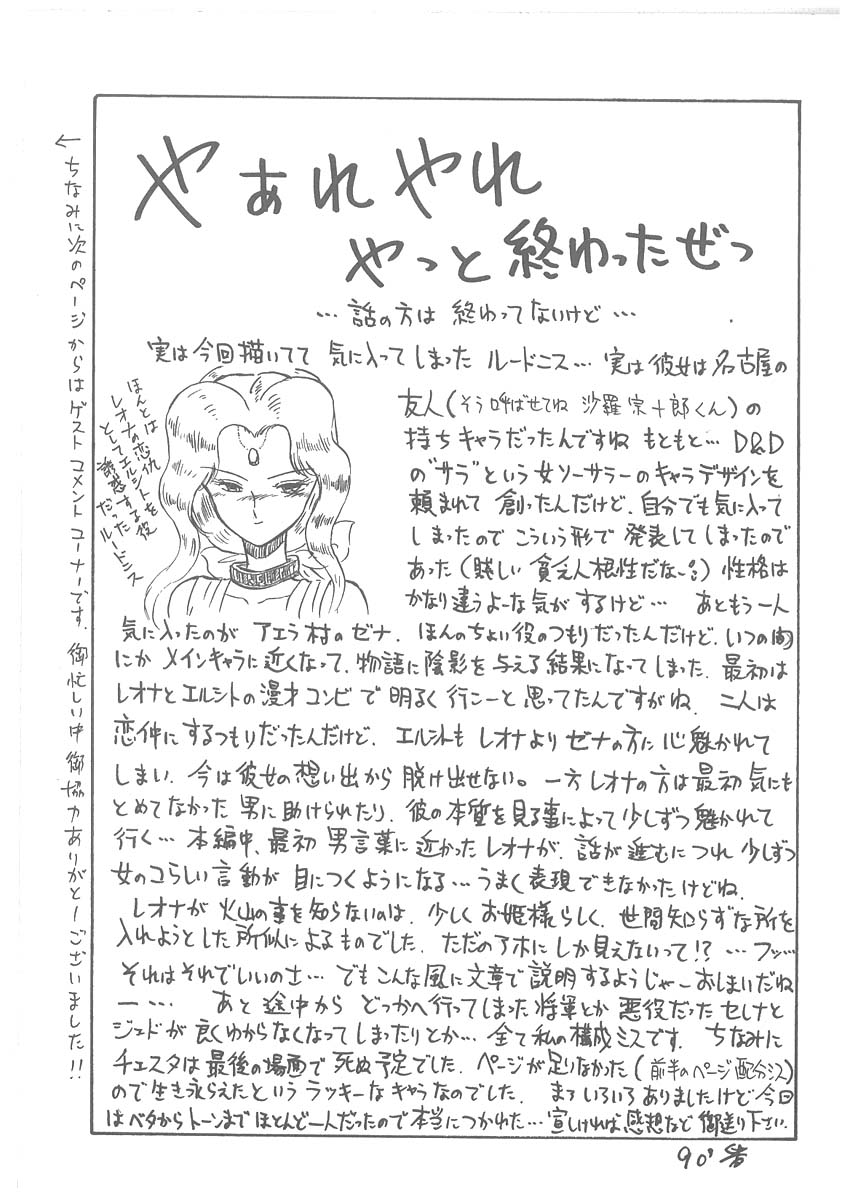 やぁれやれ
やっと終わったぜっ
…話の方は終わってないけど…
実は今回描いてて気に入ってしまったルードニス…実は彼女は名古屋の
友人(そう呼ばせてね 沙羅宗十郎くん)の
持ちキャラだったんですね もともと…D&D
の"サラ"という女ソーサラーのキャラデザインを
頼まれて創ったんだけど、自分でも気に入って
しまったのでこういう形で発表してしまったので
あった(賎しい貧乏人根性だな〜) 性格は
かなり違うよーな気がするけど… あともう一人
気に入ったのがアエラ村のゼナ. ほんのちょい役のつもりだったんだけど、いつの間
にかメインキャラに近くなって、物語に陰影を与える結果になってしまった. 最初は
レオナとエルシトの漫才コンビで明るく行こーと思ってたんですがね. 二人は
恋仲にするつもりだったんだけど、エルシトもレオナよりゼナの方に心魅かれて
しまい、今は彼女の想い出から脱け出せない。一方レオナの方は最初気にも
とめてなかった男に助けられたり、彼の本質を見る事によって少しずつ魅かれて
行く…本編中、最初男言葉に近かったレオナが、話が進むにつれ少しずつ
女のコらしい言動が目につくようになる…うまく表現できなかったけどね.
レオナが火山の事を知らないのは、少しくお姫様らしく、世間知らずな所を
入れようとした所似によるものでした. ただのアホにしか見えないって!? …フッ…
それはそれでいいのさ… でもこんな風に文章で説明するようじゃーおしまいだね
ー… あと途中からどっかへ行ってしまった将軍とか悪役だったセレナと
ジェドが良くわからなくなってしまったりとか…全て私の構成ミスです. ちなみに
チェスタは最後の場面で死ぬ予定でした. ページが足りなかった(前半のページ配分ミス)
ので生き永らえたというラッキーなキャラなのでした. まァいろいろありましたけど今回
はベタからトーンまでほとんど一人だったので本当につかれた…宜しければ感想など御送り下さい.
90'
ほんとは
レオナの恋仇
としてエルシトを
誘惑する役
だった
ルードニス
←ちなみに次のページからはゲストコメントコーナーです. 御忙しい中御協力ありがとーございました!!